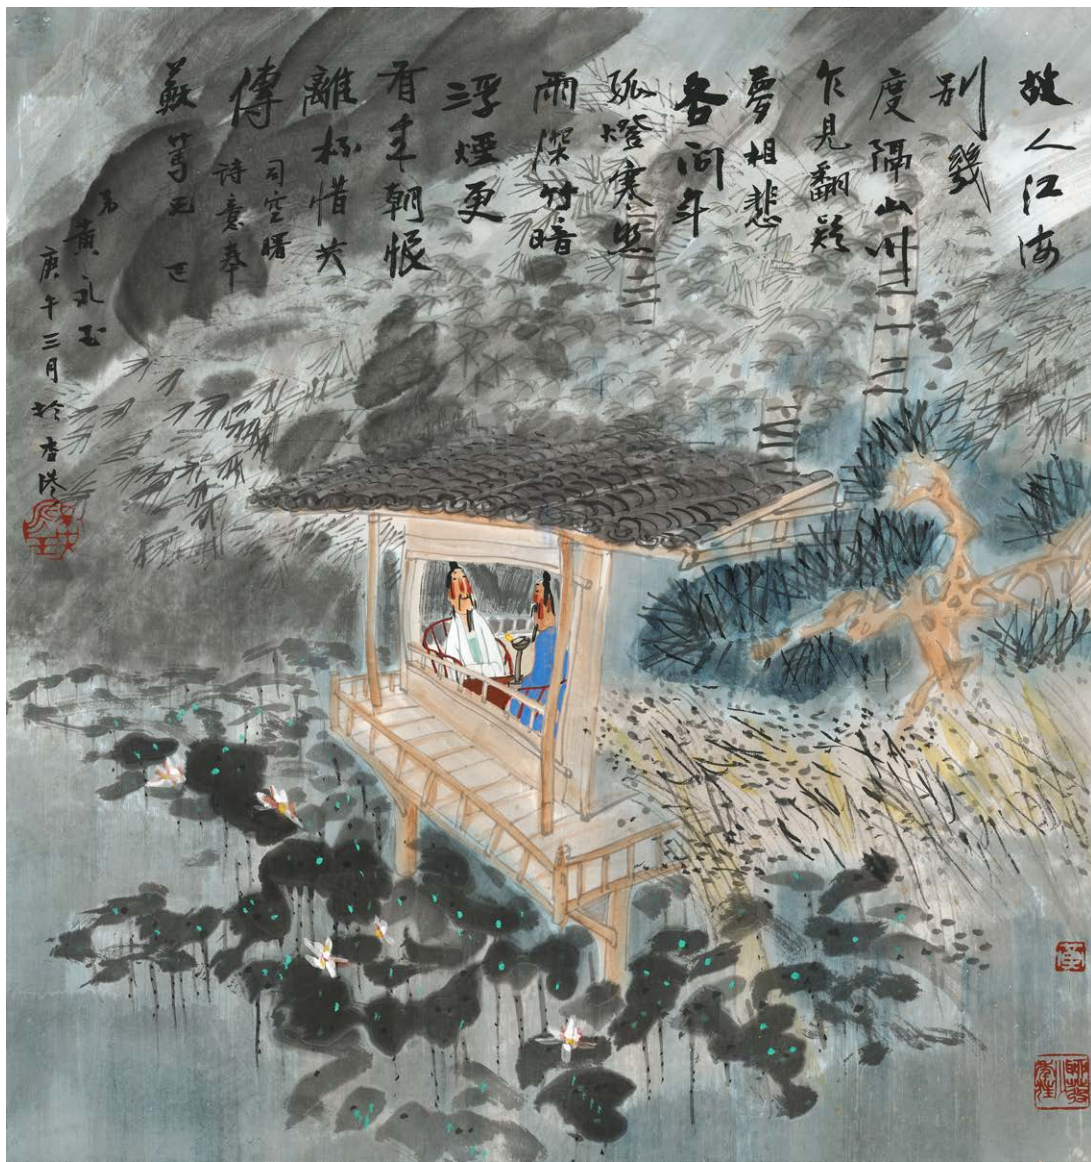 故人江海
别幾
度隔山川
乍見翻疑
夢相悲
各问年
孤燈寒照
雨深竹暗
浮煙更
有来朝恨
離杯惜共
傳
司空曙
詩意奉
蘇篤兄正
弟黄永玉
庚午三月於香港